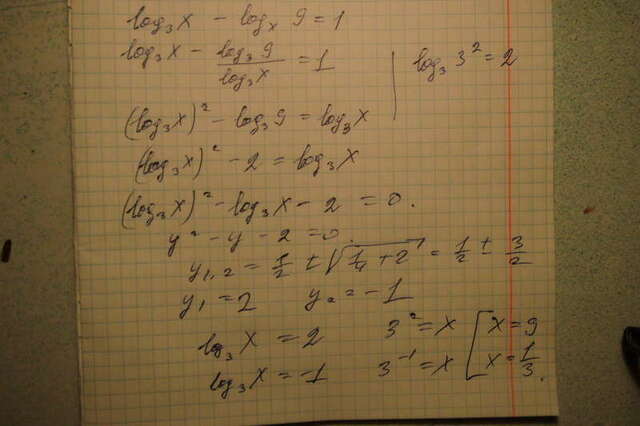 log₃x - logₓ9 = 1
log₃x - log₃9/log₃x = 1
log₃3² = 2
(log₃x)² - log₃9 = log₃x
(log₃x)² - 2 = log₃x
(log₃x)² - log₃x - 2 = 0.
y² - y - 2 = 0.
y₁,₂ = 1/2 ± √(1/4 + 2) = 1/2 ± 3/2
y₁ = 2 y₂ = -1
log₃x = 2 3² = x [ x = 9
log₃x = -1 3⁻¹ = x [ x = 1/3.